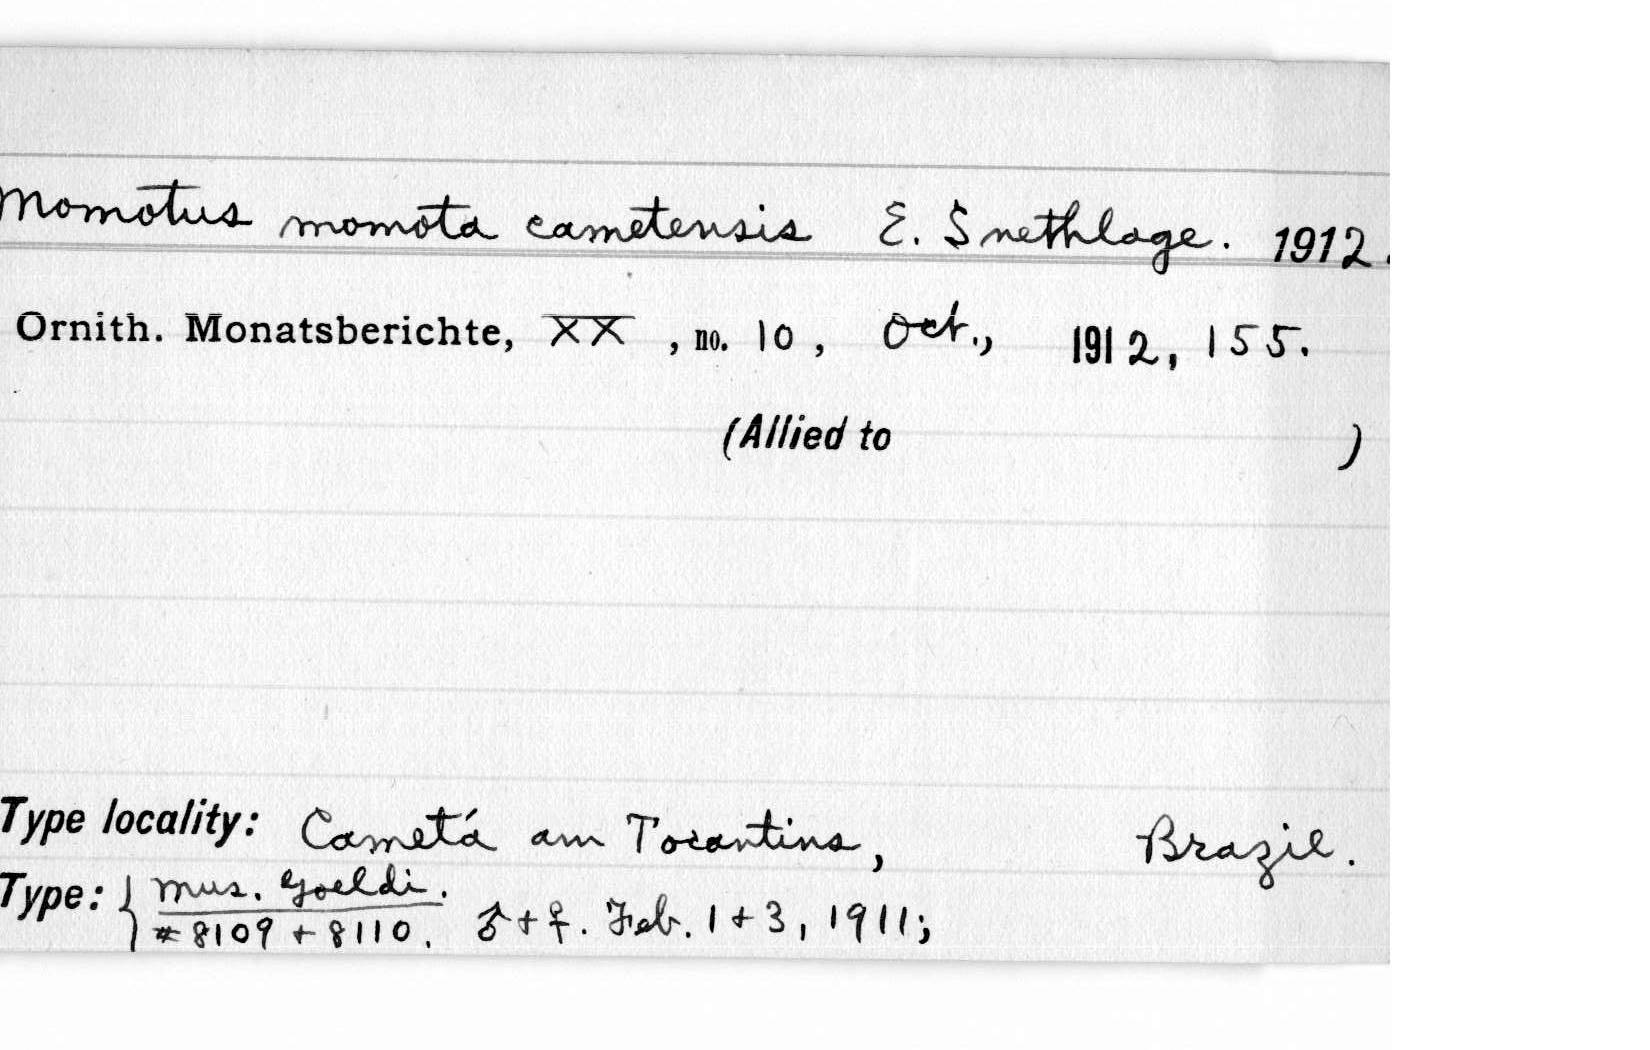 Momotus momota cametensis E. Snethlage. 1912.
Ornith. Monatsberichte, XX, no. 10, Oct., 1912, 155.
(Allied to )
Type locality: Cametá am Tocantins, Brazil.
Type: { Mus. Goeldi.
#8109 + 8110. ♂ + ♀. Feb. 1 + 3, 1911;